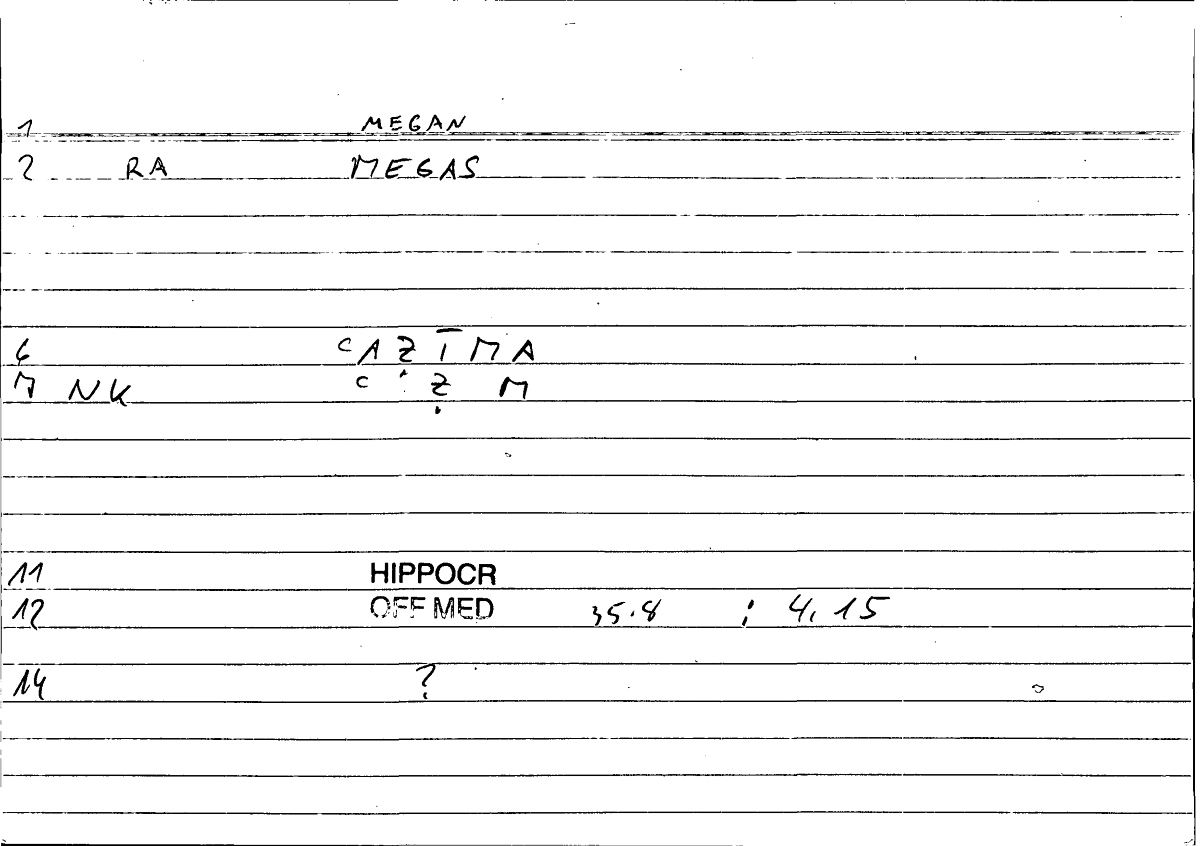 1 MEGAN
2 RA MEGAS
6 ʿAẒĪMA
7 NK ʿ Ẓ M
11 HIPPOCR
12 OFF MED 35.8 ; 4, 15
14 ?